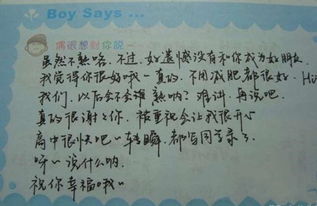 Boy Says ...
偶很想對你說……
虽然不熟喀. 不过. 好遗憾没有和你成为好朋友.
我觉得你很好哦~ 真的. 不用减肥都很好. Hi
我们. 以后会不会很熟呐? 难讲. 再说吧.
真的很谢谢你. 被重视会让我很开心
高中很快吧~ 转瞬. 都写同学录了.
呀~ 说什么呐.
祝你幸福哦~